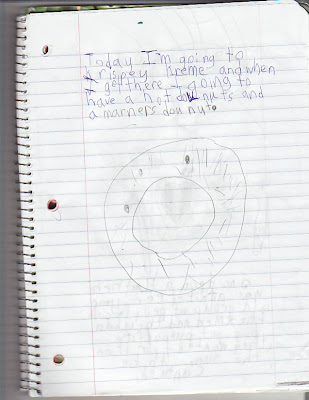 Today I'm going to
krispey kreme and when
I get there I going to
have a hot dounuts and
a marners dou nut.